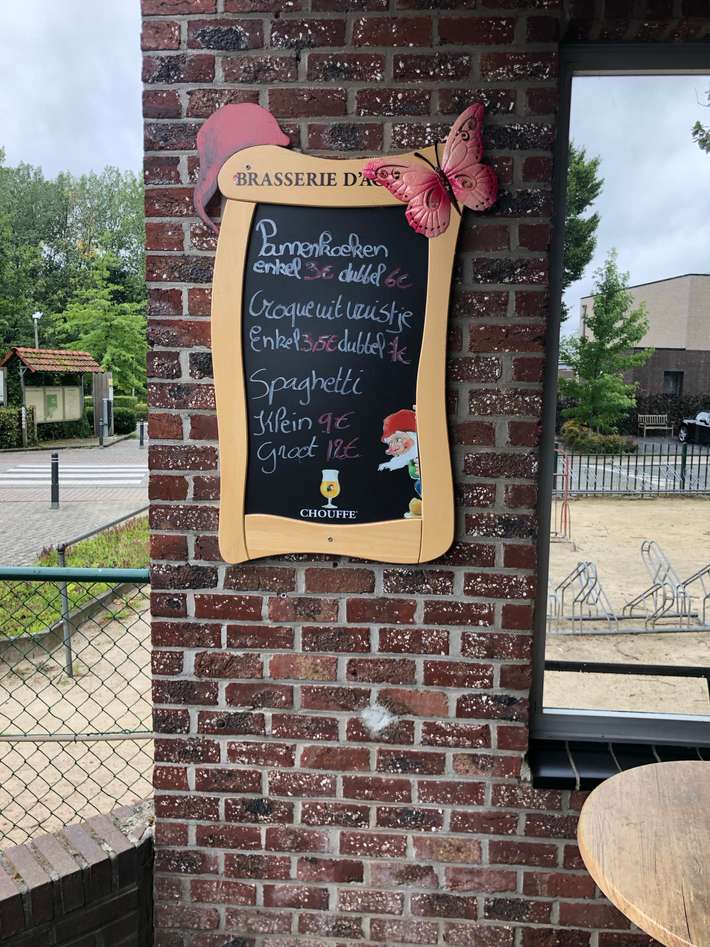 BRASSERIE D'AC
Pannenkoeken
enkel 3€ dubbel 6€
Croque uit vuistje
Enkel 3,5€ dubbel 7€
Spaghetti
Klein 9€
Groot 12€
CHOUFFE